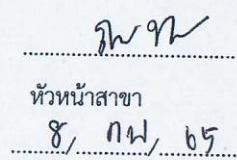 หัวหน้าสาขา
8, กพ, 65